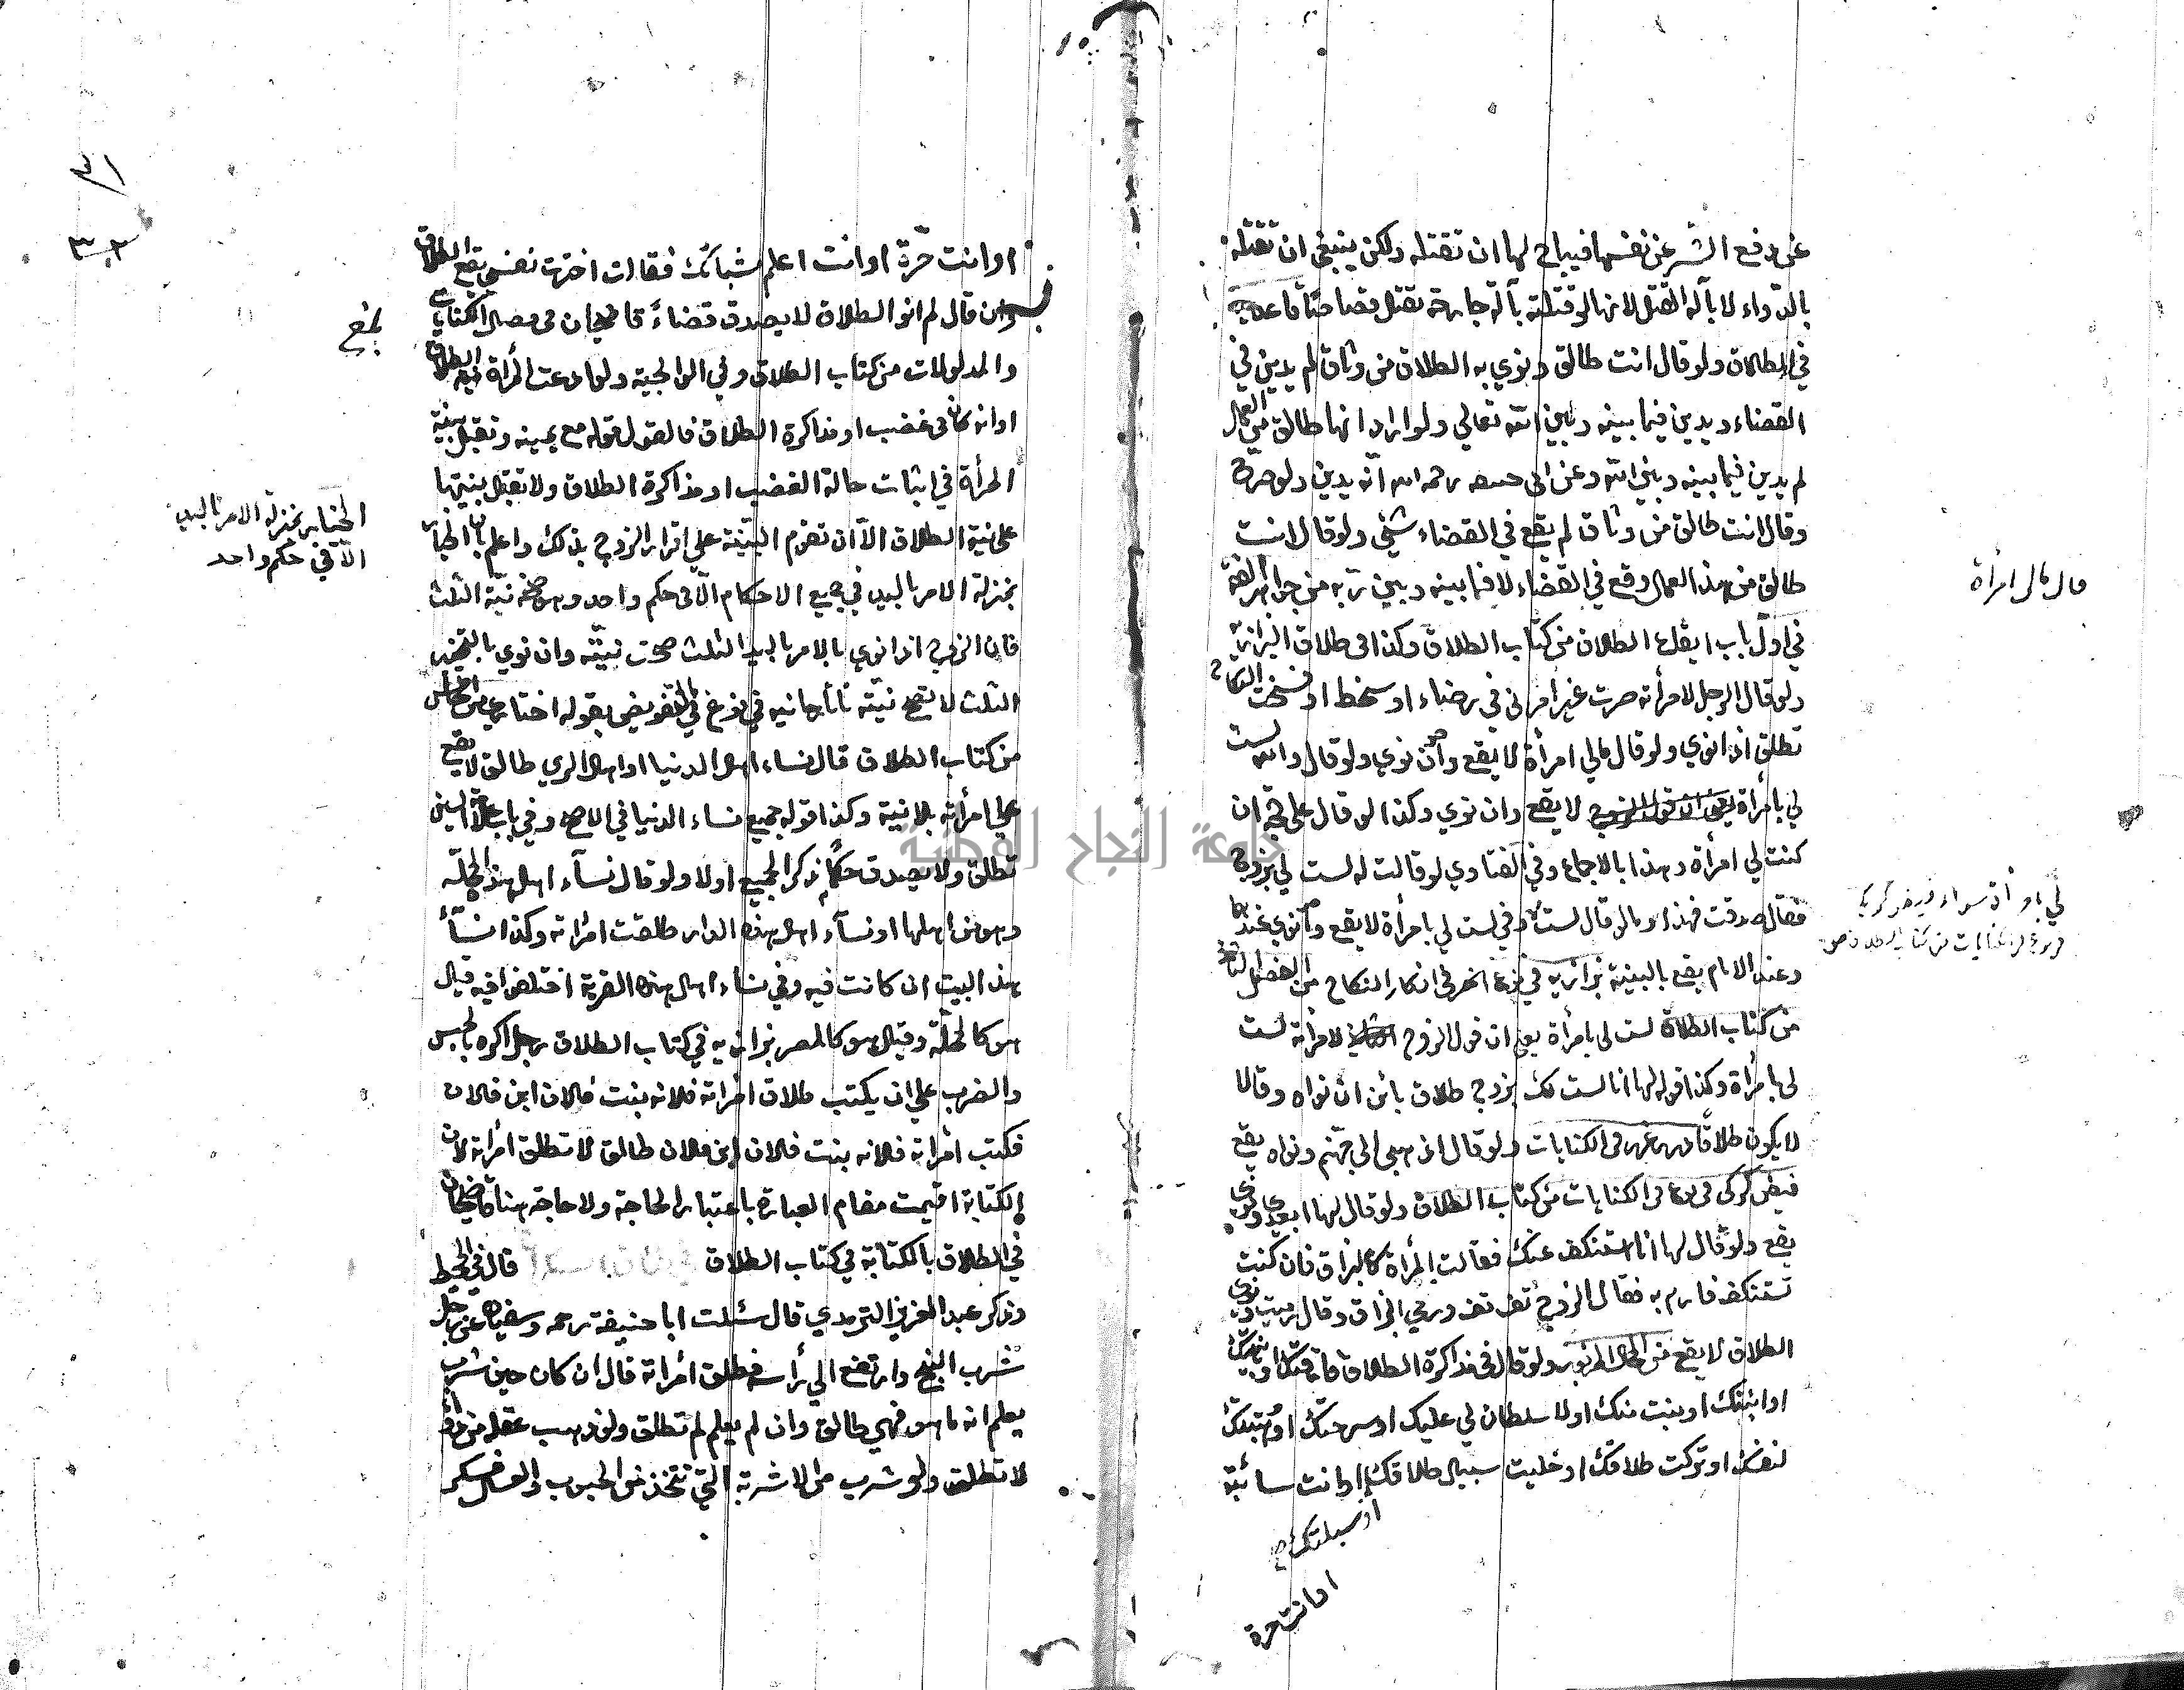 عن دفع الشر عن نفسها فيباح لها ان تقتله ولكن ينبغي ان تقتله
بالدواء لا بآلة القتل لانها لو قتلته بآلة جارحة تقتل قصاصا
في الطلاق ولو قال انت طالق ونوي به الطلاق من وثاق لم يدين في
القضاء ويدين فيما بينه وبين الله تعالي ولو اراد انها طالق من العمل
لم يدين فيما بينه وبين الله وعن ابي رحمه الله انه يدين ولو صرح
وقال انت طالق من وثاق لم يقع في القضاء شيئ ولو قال انت
طالق من هذا العمل وقع في القضاء لا فيما بينه وبين ربه من
في اول باب ايقاع الطلاق من كتاب الطلاق وكذا في طلاق البزازية
ولو قال الرجل لامرأته صرت غير امرأتي في رضاء او سخط او فسخت النكاح
تطلق اذا نوي ولو قال مالي امرأة لا يقع وان نوي ولو قال والله لست
لي بامرأة لا يقع وان نوي وكذا لو قال علي حجة ان
كنت لي امرأة وهذا بالاجماع وفي الفتاوي لو قالت له لست لي بزوج
فقال صدقت فهذا وما لو قال لست وفي لست لي بامرأة لا يقع وان نوي عندهما
وعند الامام يقع بالنية بزازية في نوع اخر في انكار النكاح من الفصل
من كتاب الطلاق لست لي بامرأة يعني ان قول الزوج لامرأته لست
لي بامرأة وكذا قوله لها انا لست لك بزوج طلاق بائن ان نواه وقالا
لا يكون طلاقا في الكنايات ولو قال اذهبي الي جهنم ونواه يقع
فيض كركي في الكنايات من كتاب الطلاق ولو قال لها ابعدي ونوي
يقع ولو قال لها انا استنكف عنك فقالت المرأة كالبزاق فان كنت
تستنكف فارم به فقال الزوج تف تف ورمي البزاق وقال رميت ونوي
الطلاق لا يقع من المحل المزبور ولو قال في مذاكرة الطلاق فارقتك او باينتك
او ابنتك او بنت منك او لا سلطان لي عليك او سرحتك او وهبتك
لنفسك او تركت طلاقك او خليت سبيل طلاقك او انت سائبة
او سبلتك
او انت حرة
قال مالي امرأة
لي بامرأة سواء
او انت حرة او انت اعلم بشبانك فقالت اخترت نفسي يقع الطلاق
وان قال لم انو الطلاق لا يصدق قضاء قاضيخان في فصل الكنايات
والمدلولات من كتاب الطلاق وفي الولوالجية ولو ادعت المرأة نية الطلاق
او انه كان في غضب او مذاكرة الطلاق فالقول قوله مع يمينه وتقبل بينة
المرأة في اثبات حالة الغضب او مذاكرة الطلاق ولا تقبل بينتها
علي نية الطلاق الا ان تقوم البينة علي اقرار الزوج بذلك واعلم بان الخيار
بمنزلة الامر باليد في جميع الاحكام الا في حكم واحد وهو صحة نية الثلث
فان الزوج اذا نوي بالامر باليد الثلث صحت نيته وان نوي بالتخيير
الثلث لا تصح نيته تاتارخانيه في نوع في التفويض بقوله اختاري من الخامس
من كتاب الطلاق قال نساء اهل الدنيا او اهل الري طالق لا يقع
علي امرأته بلا نية وكذا قوله جميع نساء الدنيا في الاصح وفي باب علامة السين
تطلق ولا يصدق حكما ذكر الجميع اولا ولو قال نسآء اهل هذه المحلة
وهو من اهلها او نسآء اهل هذه الدار طلقت امرأته وكذا نسآء
هذا البيت ان كانت فيه وفي نساء اهل هذه القرية اختلفوا فيه قيل
هو كالمحلة وقيل هو كالمصر بزازيه في كتاب الطلاق رجل اكره بالحبس
والضرب علي ان يكتب طلاق امرأته فلانه بنت فلان ابن فلان
فكتب امرأته فلانه بنت فلان ابن فلان طالق لا تطلق امرأته لان
الكتابة اقيمت مقام العبارة باعتبار الحاجة ولا حاجة هنا قاضيخان
في الطلاق بالكتابة في كتاب الطلاق قال في المحيط
وذكر عبد العزيز الترمدي قال سئلت ابا حنيفة رحمه وسفيان عن رجل
شرب البنج وارتفع الي رأسه فطلق امرأته قال ان كان حين شرب
يعلم انه ما هو فهي طالق وان لم يعلم لم تطلق ولو ذهب عقله من دواء
لا تطلق ولو شرب من الاشربة التي تتخذ من الحبوب والعسل فسكر
بلغ
الخيار بمنزلة الامر باليد
الا في حكم واحد
جامعة النجاح الوطنية